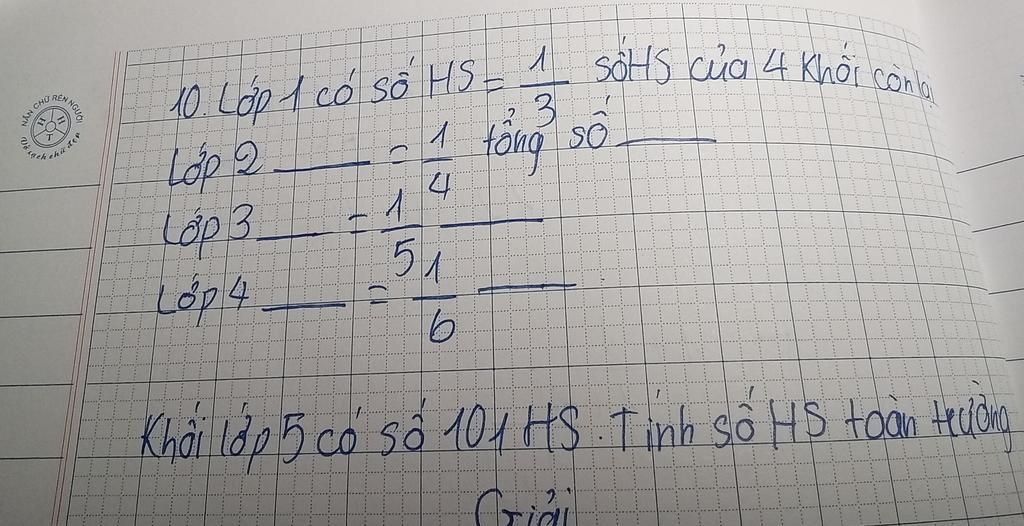 NẮN CHỮ RÈN NGƯỜI
HHT
10. Lớp 1 có số HS = 1/3 số HS của 4 khối còn lại
Lớp 2 ___ = 1/4 tổng số ___
Lớp 3 ___ = 1/5 ___
Lớp 4 ___ = 1/6 ___
Khối lớp 5 có số 101 HS. Tính số HS toàn trường
Giải